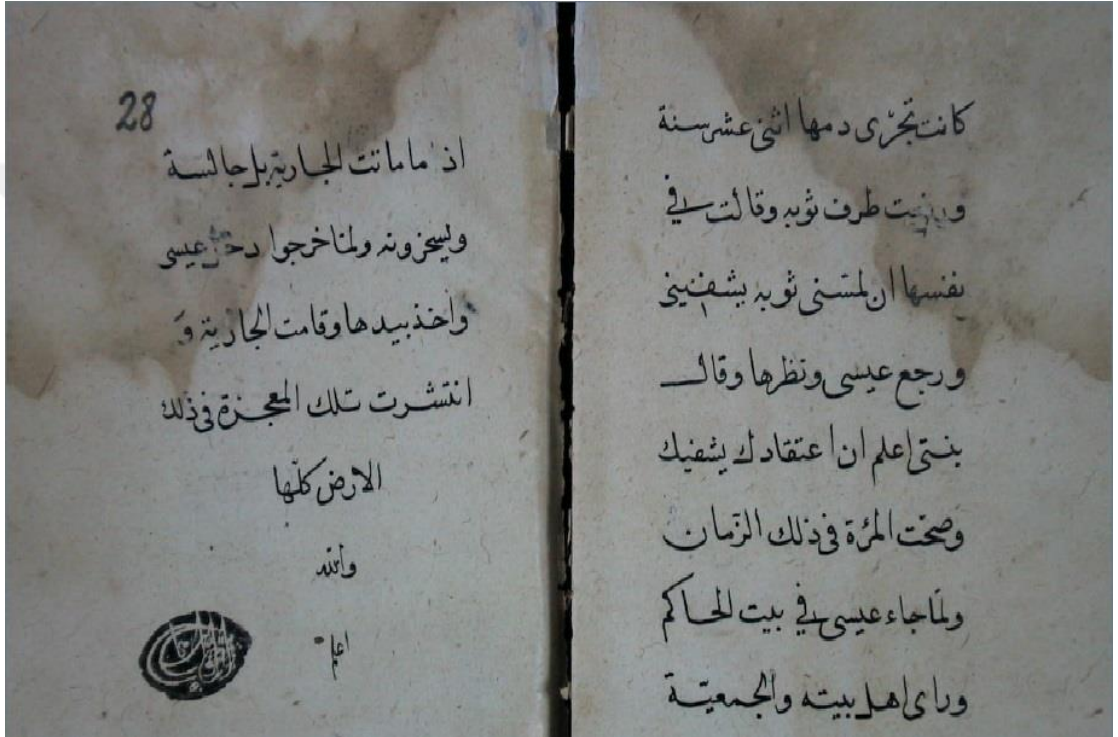 كانت تجرّى دمها اثنى عشر سنة
طرف ثوبه وقالت في
نفسها ان لمسنى ثوبه يشفينى
ورجع عيسى ونظرها وقال
بنتى اعلم ان اعتقادك يشفيك
وصحّت المرٔة فى ذلك الزّمان
ولمّا جاء عيسى في بيت الحاكم
وراى اهل بيته والجمعيّة
28
اذ ما ماتت الجارية بل جالسة
ويسخرونه ولمّا خرجوا دخل عيسى
واخذ بيدها وقامت الجارية وَ
انتشرت تلك المعجزة فى ذلك
الارض كلّها
والله
اعلم